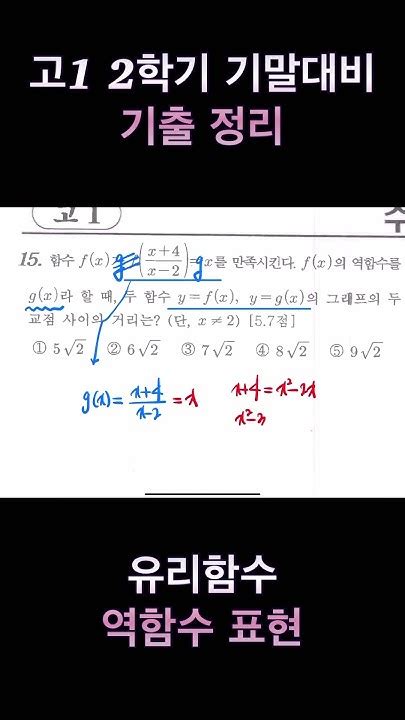 고1 2학기 기말대비
기출 정리
고1
수
15. 함수 f(x) (x+4/x−2)=x를 만족시킨다. f(x)의 역함수를
g(x)라 할 때, 두 함수 y=f(x), y=g(x)의 그래프의 두
교점 사이의 거리는? (단, x≠2) [5.7점]
① 5√2 ② 6√2 ③ 7√2 ④ 8√2 ⑤ 9√2
g(x)= x+4/x-2 = x
x+4=x²-2x
x²-3
유리함수
역함수 표현